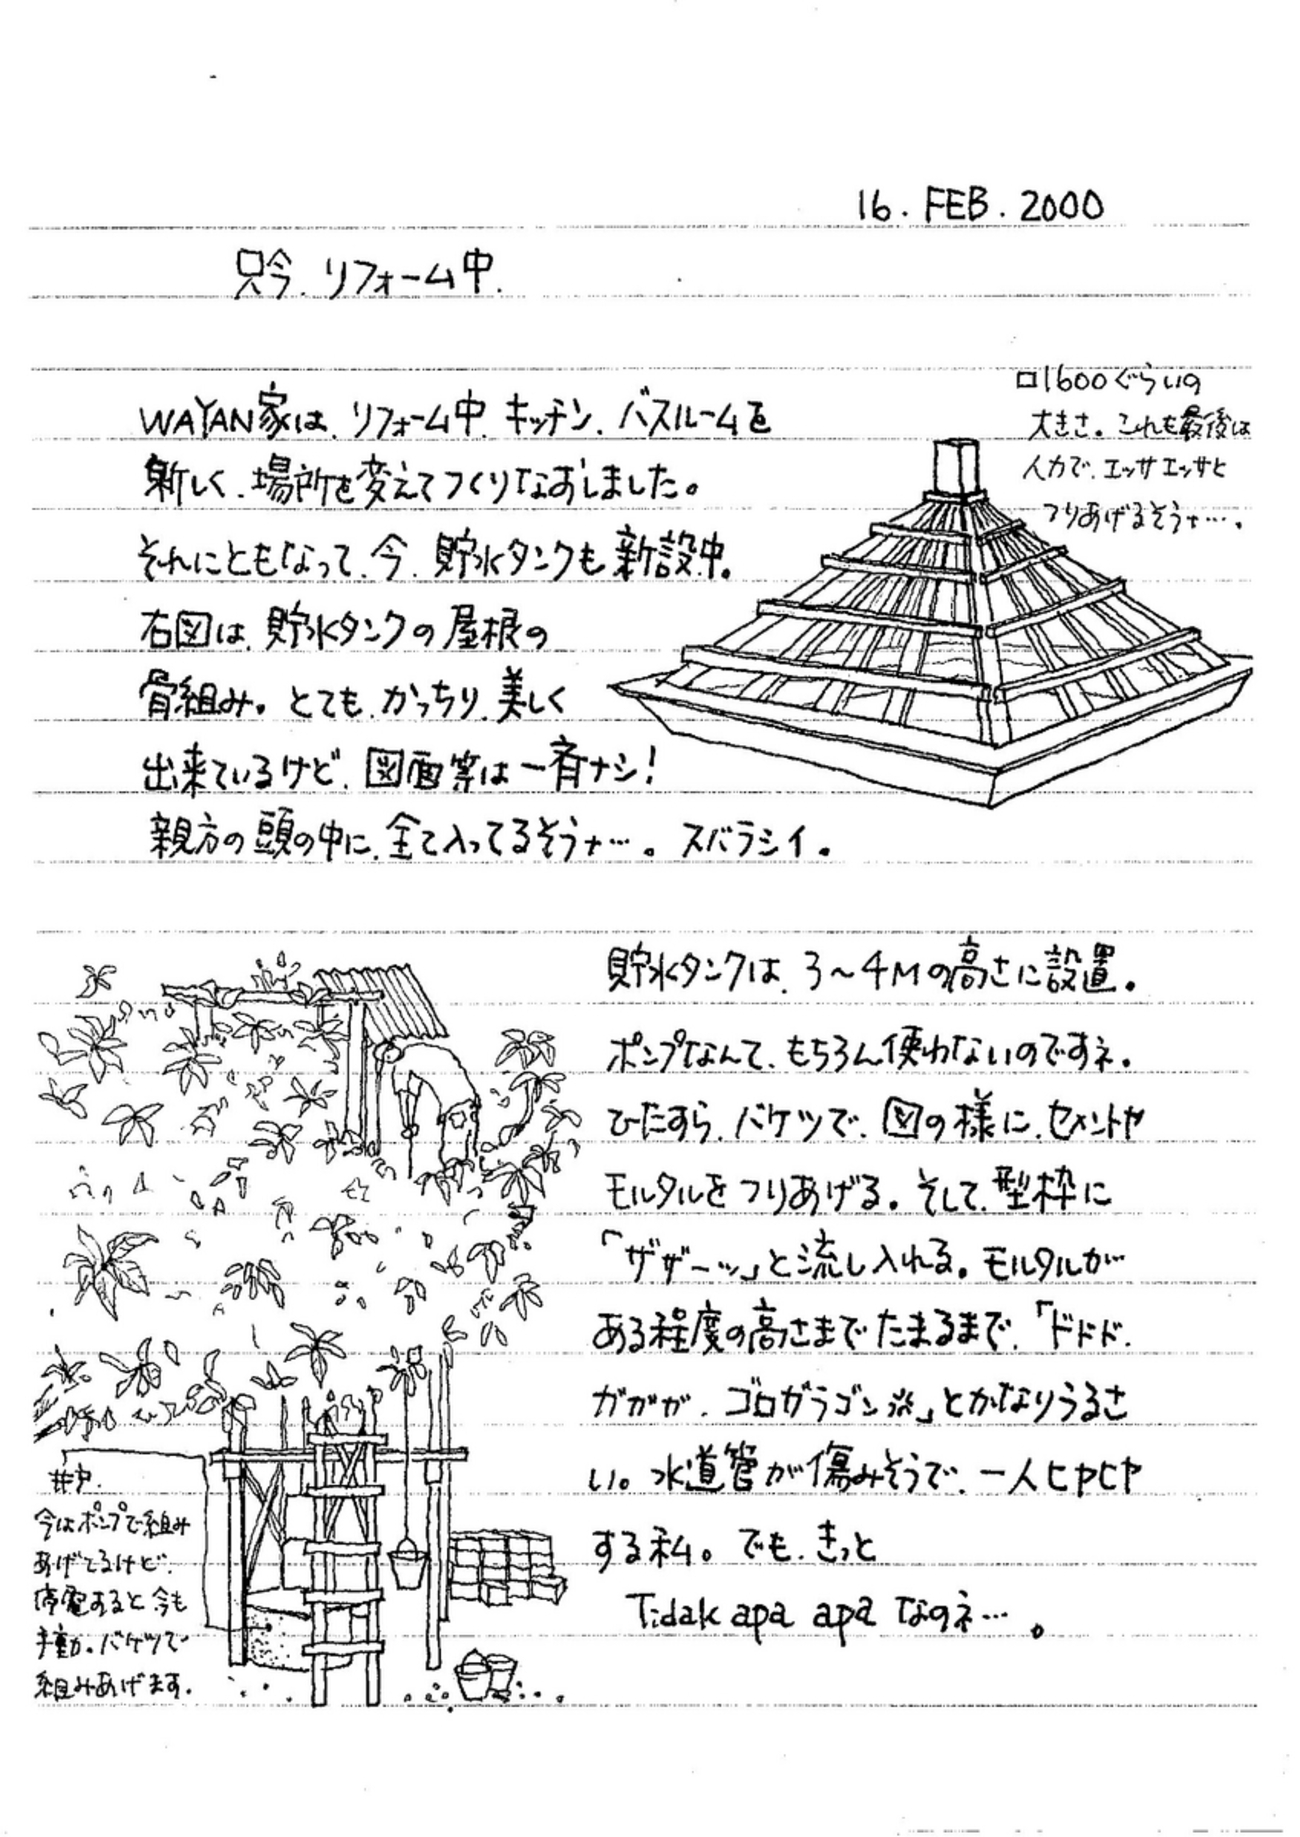 16. FEB. 2000
只今、リフォーム中.
WAYAN家は、リフォーム中、キッチン、バスルームを
新しく、場所を変えてつくりなおしました。
それにともなって、今、貯水タンクも新設中。
右図は、貯水タンクの屋根の
骨組み。とても、かっちり、美しく
出来ているけど、図面等は一斉ナシ!
親方の頭の中に、全て入ってるそうナ…。スバラシイ。
口1600ぐらいの
大きさ。これも最後は
人力で、エッサエッサと
つりあげるそうナ…。
貯水タンクは、3〜4Mの高さに設置。
ポンプなんて、もちろん使わないのですネ。
ひたすら、バケツで、図の様に、セメントや
モルタルをつりあげる。そして、型枠に
「ザザーッ」と流し入れる。モルタルが
ある程度の高さまでたまるまで、「ドドド、
ガガガ、ゴロガラゴン」とかなりうるさ
い。水道管が傷みそうで、一人ヒヤヒヤ
する私。でも、きっと
Tidak apa apa なのネ…。
井戸.
今はポンプで組み
あげてるけど、
停電すると今も
手動。バケツで
組みあげます。